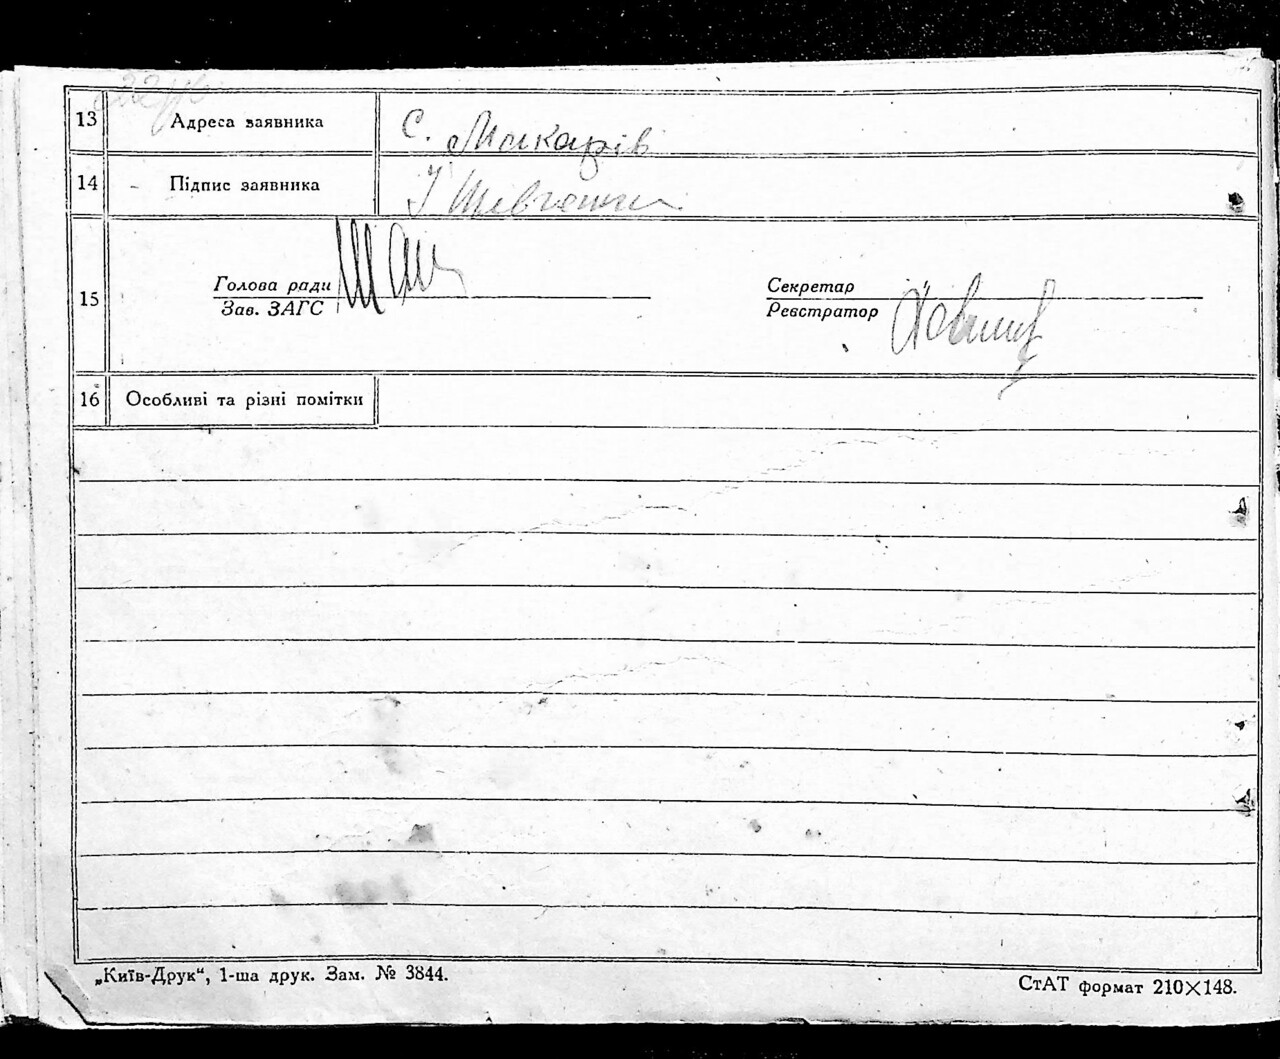 13 Адреса заявника с. Макарів
14 Підпис заявника І Шевченко
15
Голова ради
Зав. ЗАГС
Секретар
Реєстратор
16 Особливі та різні помітки
„Київ-Друк“, 1-ша друк. Зам. № 3844.
СтАТ формат 210×148.